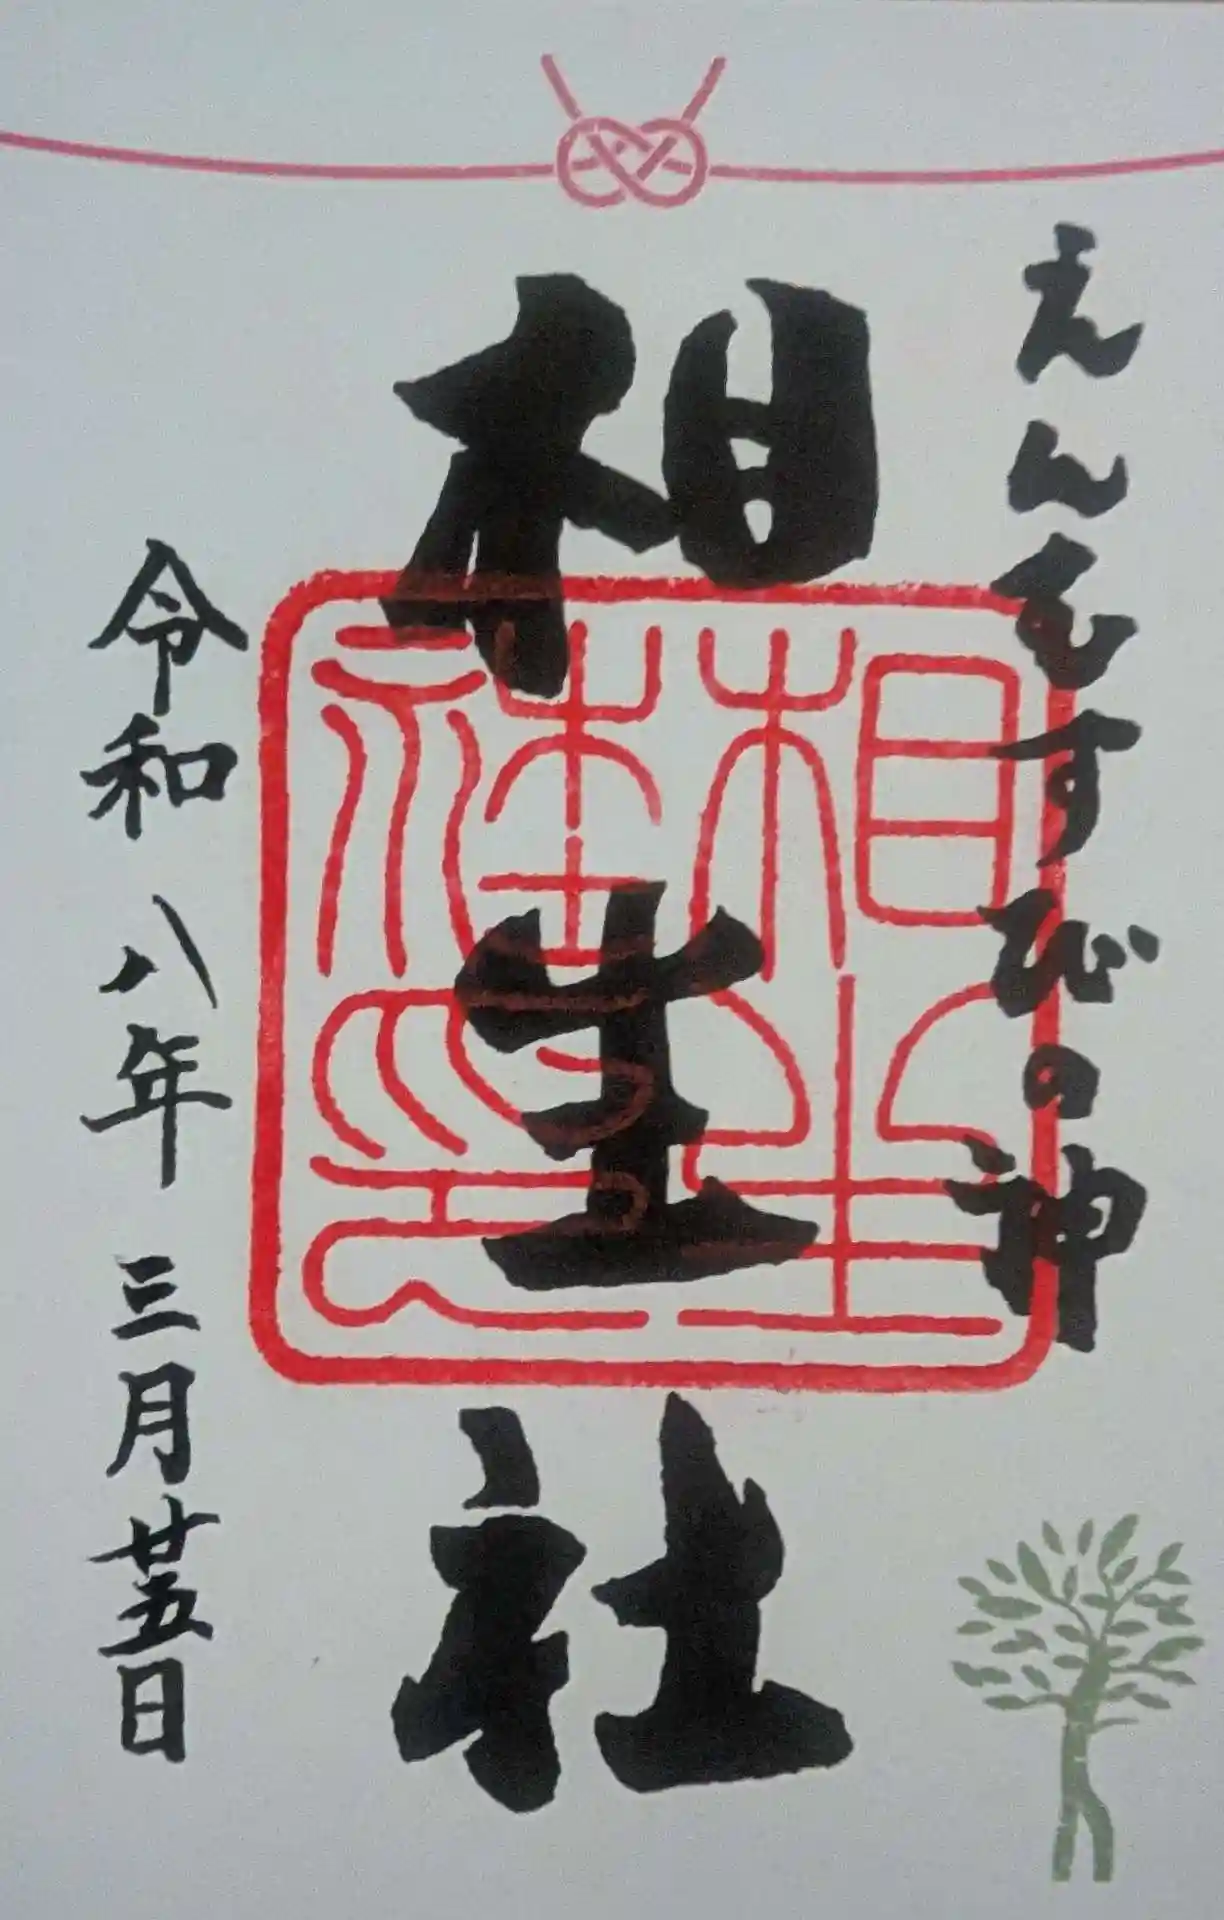 えんむすびの神
相生社
相生社神印
令和八年三月廿五日